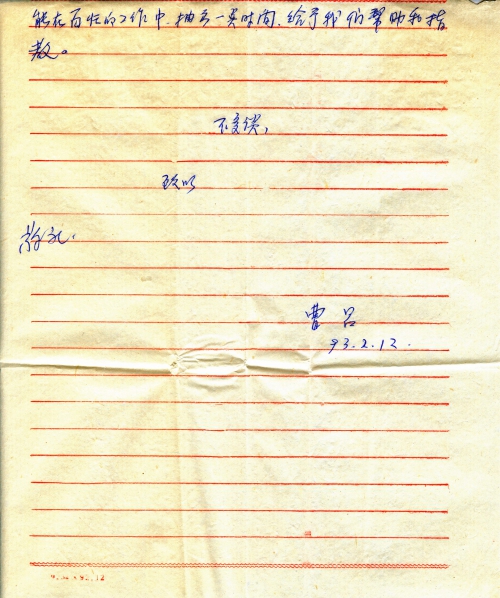 能在百忙的工作中，抽出一点时间，给予我们帮助和指
教。
不多谈，
致以
敬礼.
曹 吕
93.2.12.